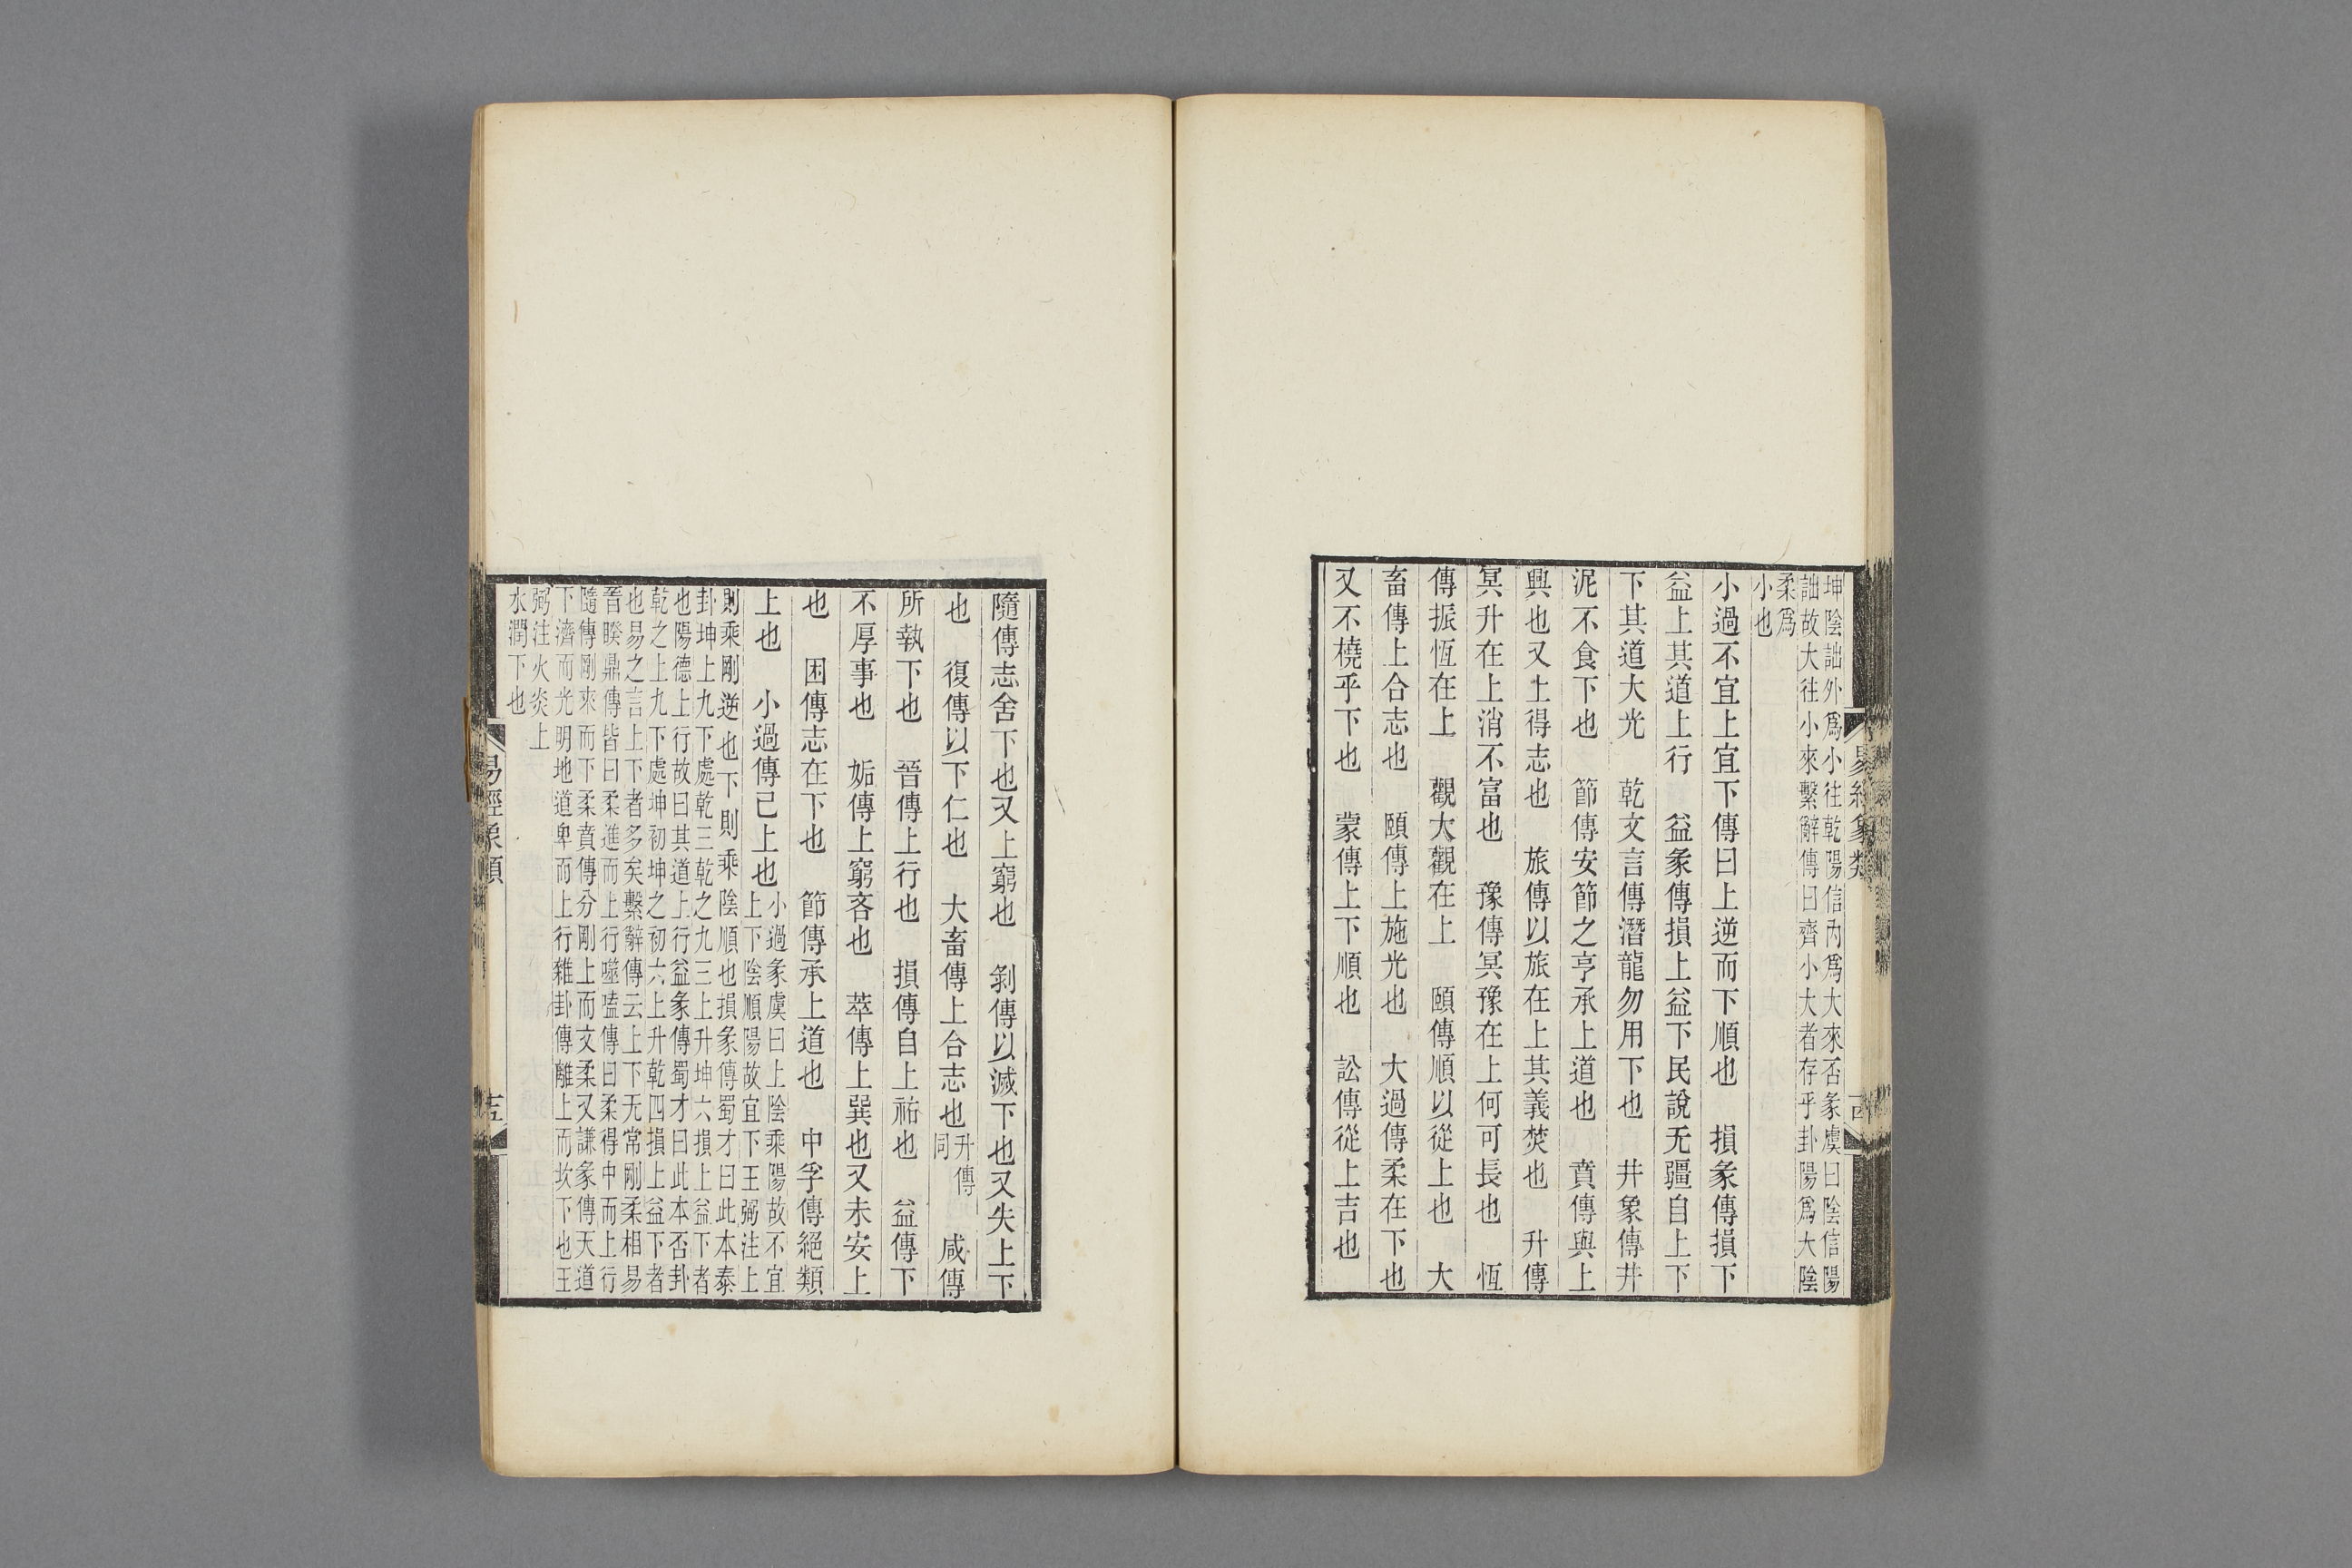 坤陰詘外爲小往乾陽信內爲大來否彖虞曰陰信陽
詘故大往小來繫辭傳曰齊小大者存乎卦陽爲大陰
柔爲
小也
小過不宜上宜下傳曰上逆而下順也　損彖傳損下
益上其道上行　益彖傳損上益下民說无疆自上下
下其道大光　乾文言傳潛龍勿用下也　井象傳井
泥不食下也　節傳安節之亨承上道也　賁傳與上
興也又上得志也　旅傳以旅在上其義焚也　升傳
冥升在上消不富也　豫傳冥豫在上何可長也　恆
傳振恆在上　觀大觀在上　頤傳順以從上也　大
畜傳上合志也　頤傳上施光也　大過傳柔在下也
又不橈乎下也　蒙傳上下順也　訟傳從上吉也
易經象類
隨傳志舍下也又上窮也　剝傳以滅下也又失上下
也　復傳以下仁也　大畜傳上合志也升傳同　咸傳
所執下也　晉傳上行也　損傳自上祐也　益傳下
不厚事也　姤傳上窮吝也　萃傳上巽也又未安上
也　困傳志在下也　節傳承上道也　中孚傳絕類
上也　小過傳已上也小過彖虞曰上陰乘陽故不宜
上下陰順陽故宜下王弼注上
則乘剛逆也下則乘陰順也損彖傳蜀才曰此本泰
卦坤上九下處乾三乾之九三上升坤六損上益下者
也陽德上行故曰其道上行益彖傳蜀才曰此本否卦
乾之上九下處坤初坤之初六上升乾四損上益下者
也易之言上下者多矣繫辭傳云上下无常剛柔相易
晉睽鼎傳皆曰柔進而上行噬嗑傳曰柔得中而上行
隨傳剛來而下柔賁傳分剛上而文柔又謙彖傳天道
下濟而光明地道卑而上行雜卦傳離上而坎下也王
弼注火炎上
水潤下也
易經象類
十五